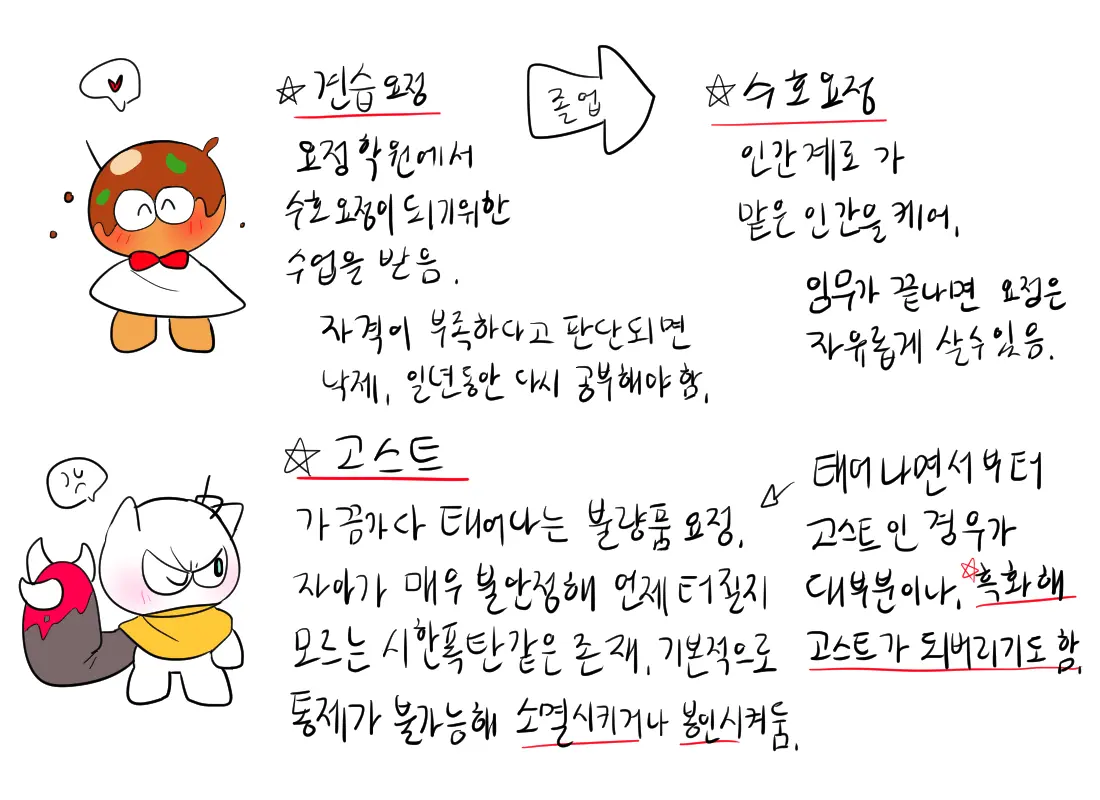 ☆ 견습요정
요정학원에서
수호요정이 되기위한
수업을 받음.
자격이 부족하다고 판단되면
낙제. 일년동안 다시 공부해야함.
졸업
☆ 수호요정
인간계로 가
맡은 인간을 케어.
임무가 끝나면 요정은
자유롭게 살수있음.
☆ 고스트
가끔가다 태어나는 불량품요정.
자아가 매우 불안정해 언제터질지
모르는 시한폭탄같은 존재. 기본적으로
통제가 불가능해 소멸시키거나 봉인시켜둠.
태어나면서부터
고스트인 경우가
대부분이나, ☆흑화해
고스트가 되버리기도 함.